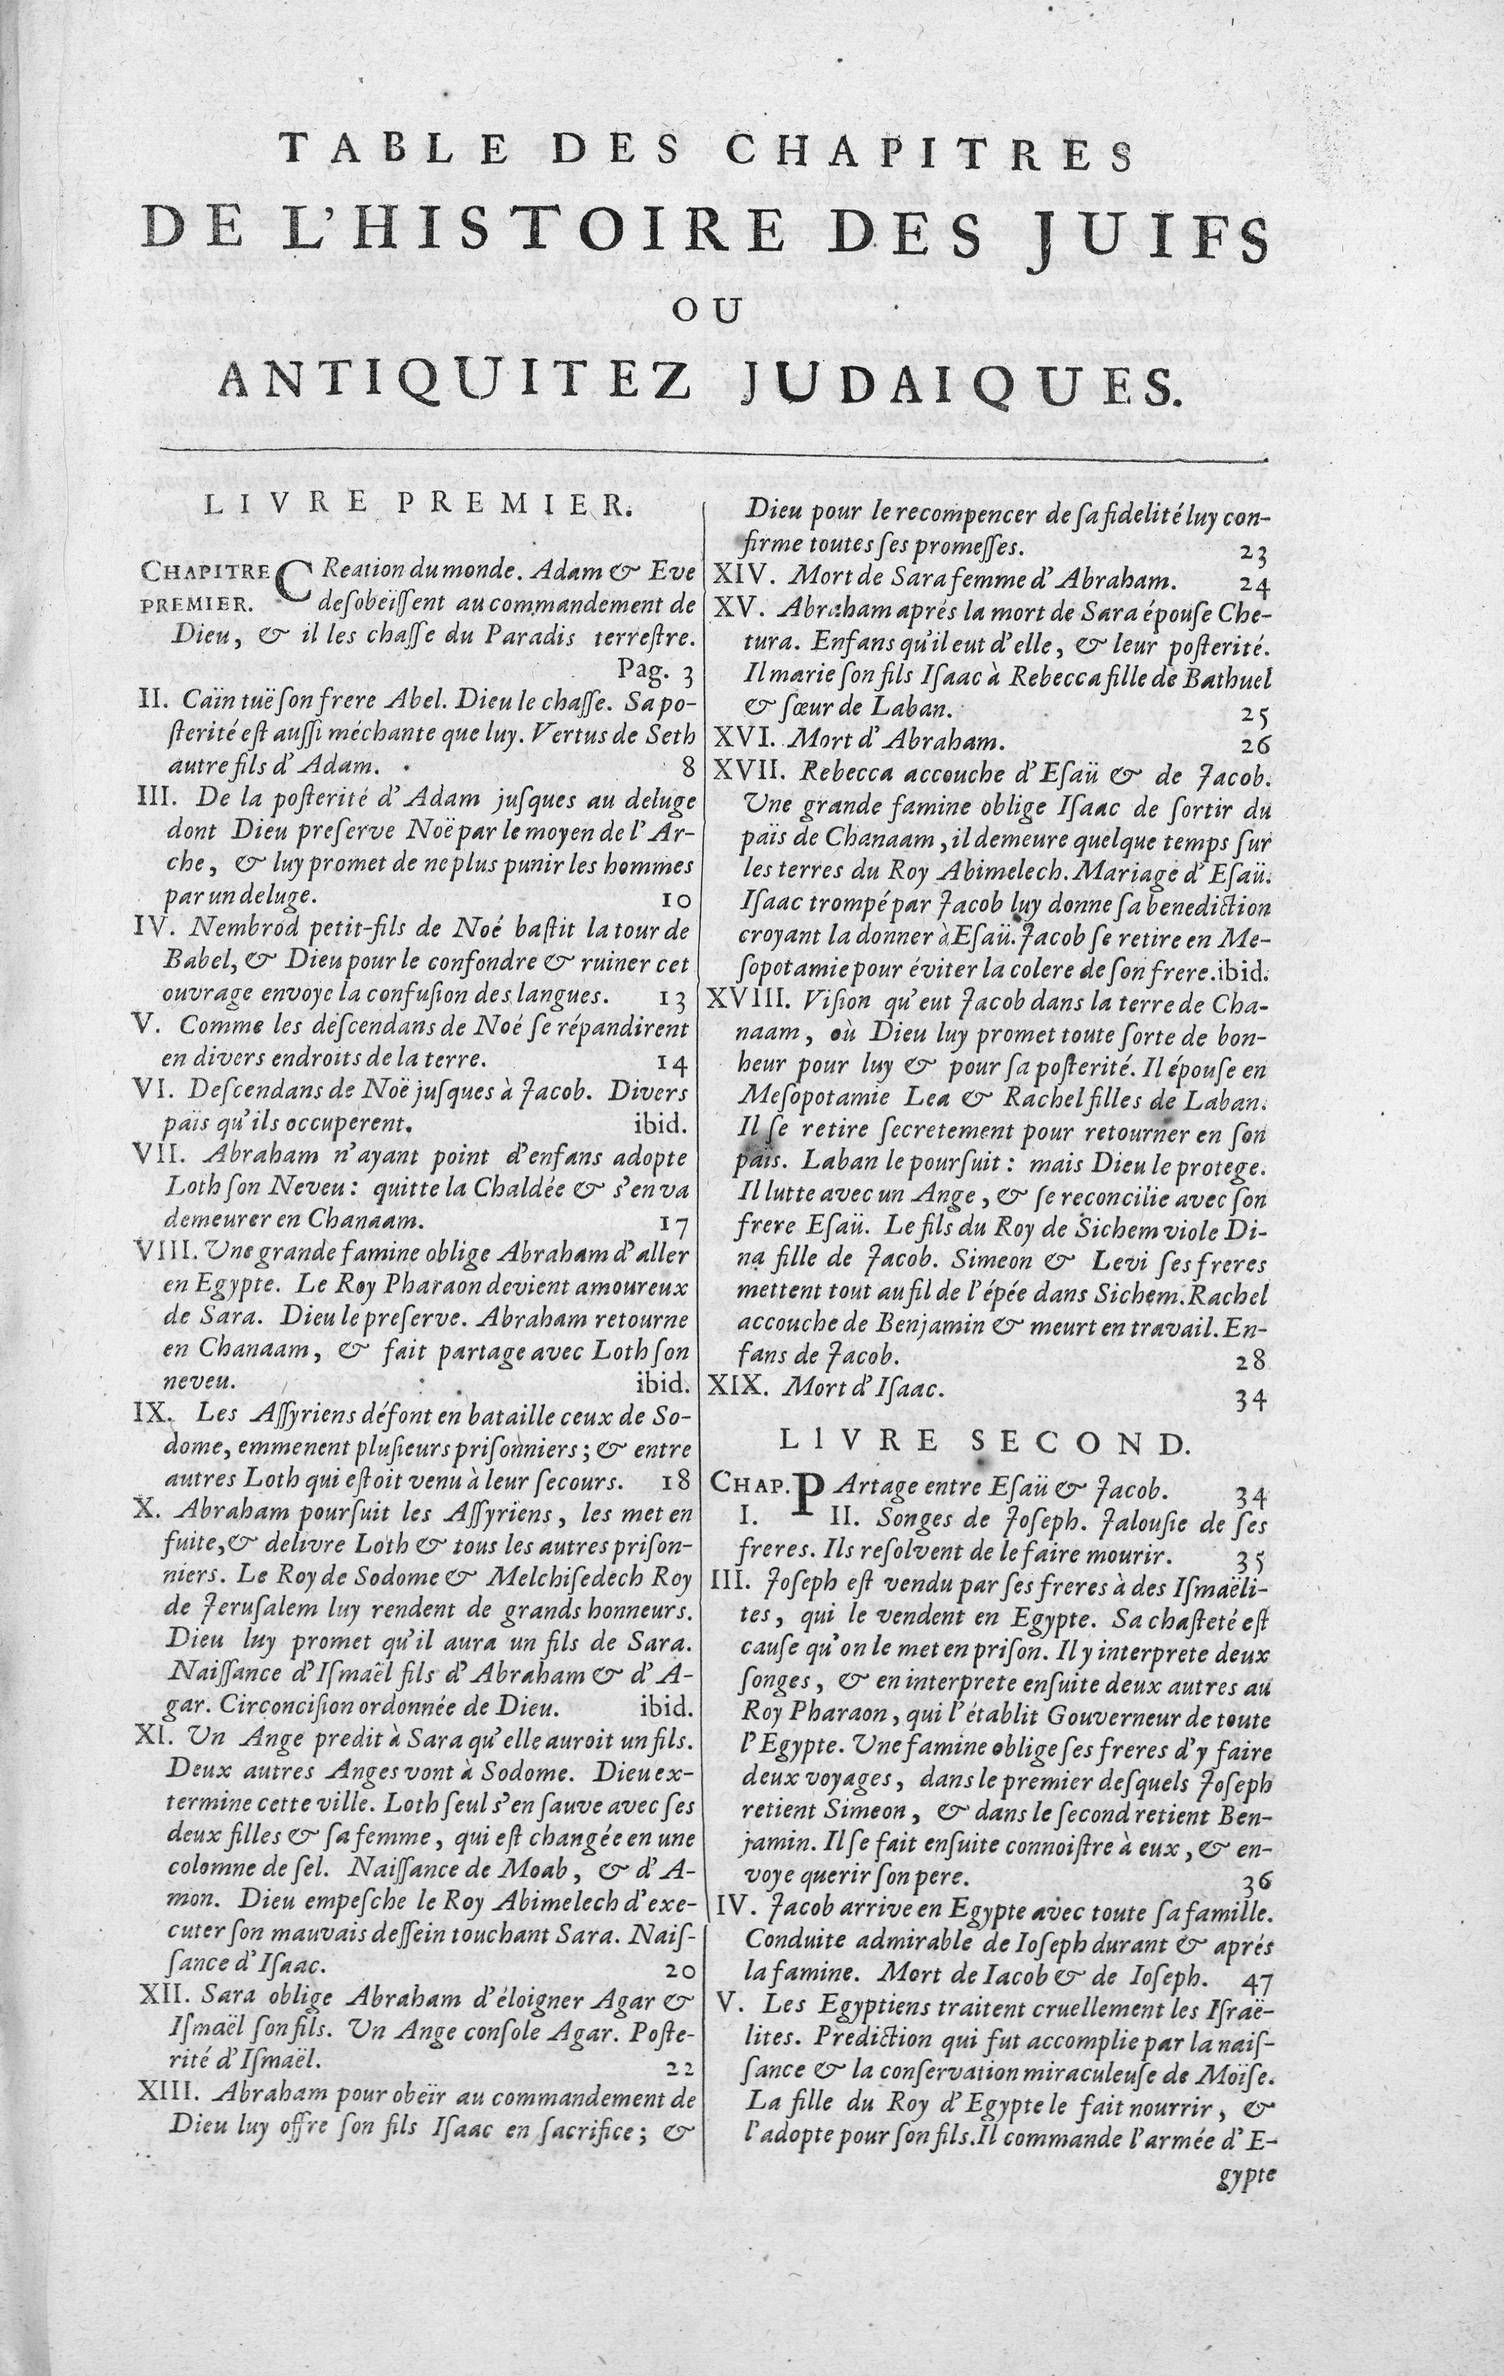 TABLE DES CHAPITRES
DE L'HISTOIRE DES JUIFS
OU
ANTIQUITEZ JUDAIQUES.
LIVRE PREMIER.
CHAPITRE CReation du monde. Adam & Eve
PREMIER. deſobeïſſent au commandement de
Dieu, & il les chaſſe du Paradis terreſtre.
Pag. 3
II. Caïn tuë ſon frere Abel. Dieu le chaſſe. Sa po-
ſterité eſt auſſi méchante que luy. Vertus de Seth
autre fils d'Adam. 8
III. De la poſterité d'Adam juſques au deluge
dont Dieu preſerve Noë par le moyen de l'Ar-
che, & luy promet de ne plus punir les hommes
par un deluge. 10
IV. Nembrod petit-fils de Noé baſtit la tour de
Babel, & Dieu pour le confondre & ruiner cet
ouvrage envoye la confuſion des langues. 13
V. Comme les deſcendans de Noé ſe répandirent
en divers endroits de la terre. 14
VI. Deſcendans de Noë juſques à Jacob. Divers
païs qu'ils occuperent. ibid.
VII. Abraham n'ayant point d'enfans adopte
Loth ſon Neveu: quitte la Chaldée & s'en va
demeurer en Chanaam. 17
VIII. Une grande famine oblige Abraham d'aller
en Egypte. Le Roy Pharaon devient amoureux
de Sara. Dieu le preſerve. Abraham retourne
en Chanaam, & fait partage avec Loth ſon
neveu. ibid.
IX. Les Aſſyriens défont en bataille ceux de So-
dome, emmenent pluſieurs priſonniers; & entre
autres Loth qui eſtoit venu à leur ſecours. 18
X. Abraham pourſuit les Aſſyriens, les met en
fuite, & delivre Loth & tous les autres priſon-
niers. Le Roy de Sodome & Melchiſedech Roy
de Jeruſalem luy rendent de grands honneurs.
Dieu luy promet qu'il aura un fils de Sara.
Naiſſance d'Iſmaël fils d'Abraham & d'A-
gar. Circonciſion ordonnée de Dieu. ibid.
XI. Un Ange predit à Sara qu'elle auroit un fils.
Deux autres Anges vont à Sodome. Dieu ex-
termine cette ville. Loth ſeul s'en ſauve avec ſes
deux filles & ſa femme, qui eſt changée en une
colomne de ſel. Naiſſance de Moab, & d'A-
mon. Dieu empeſche le Roy Abimelech d'exe-
cuter ſon mauvais deſſein touchant Sara. Naiſ-
ſance d'Iſaac. 20
XII. Sara oblige Abraham d'éloigner Agar &
Iſmaël ſon fils. Un Ange conſole Agar. Poſte-
rité d'Iſmaël. 22
XIII. Abraham pour obeïr au commandement de
Dieu luy offre ſon fils Iſaac en ſacrifice; &
Dieu pour le recompencer de ſa fidelité luy con-
firme toutes ſes promeſſes. 23
XIV. Mort de Sara femme d'Abraham. 24
XV. Abraham aprés la mort de Sara épouſe Che-
tura. Enfans qu'il eut d'elle, & leur poſterité.
Il marie ſon fils Iſaac à Rebecca fille de Bathuel
& ſœur de Laban. 25
XVI. Mort d'Abraham. 26
XVII. Rebecca accouche d'Eſaü & de Jacob.
Une grande famine oblige Iſaac de ſortir du
païs de Chanaam, il demeure quelque temps ſur
les terres du Roy Abimelech. Mariage d'Eſaü.
Iſaac trompé par Jacob luy donne ſa benediction
croyant la donner à Eſaü. Jacob ſe retire en Me-
ſopotamie pour éviter la colere de ſon frere. ibid.
XVIII. Viſion qu'eut Jacob dans la terre de Cha-
naam, où Dieu luy promet toute ſorte de bon-
heur pour luy & pour ſa poſterité. Il épouſe en
Meſopotamie Lea & Rachel filles de Laban.
Il ſe retire ſecretement pour retourner en ſon
païs. Laban le pourſuit: mais Dieu le protege.
Il lutte avec un Ange, & ſe reconcilie avec ſon
frere Eſaü. Le fils du Roy de Sichem viole Di-
na fille de Jacob. Simeon & Levi ſes freres
mettent tout au fil de l'épée dans Sichem. Rachel
accouche de Benjamin & meurt en travail. En-
fans de Jacob. 28
XIX. Mort d'Iſaac. 34
LIVRE SECOND.
CHAP. PArtage entre Eſaü & Jacob. 34
I. II. Songes de Joſeph. Jalouſie de ſes
freres. Ils reſolvent de le faire mourir. 35
III. Joſeph eſt vendu par ſes freres à des Iſmaëli-
tes, qui le vendent en Egypte. Sa chaſteté eſt
cauſe qu'on le met en priſon. Il y interprete deux
ſonges, & en interprete enſuite deux autres au
Roy Pharaon, qui l'établit Gouverneur de toute
l'Egypte. Une famine oblige ſes freres d'y faire
deux voyages, dans le premier deſquels Joſeph
retient Simeon, & dans le ſecond retient Ben-
jamin. Il ſe fait enſuite connoiſtre à eux, & en-
voye querir ſon pere. 36
IV. Jacob arrive en Egypte avec toute ſa famille.
Conduite admirable de Ioſeph durant & aprés
la famine. Mort de Iacob & de Ioſeph. 47
V. Les Egyptiens traitent cruellement les Iſraë-
lites. Prediction qui fut accomplie par la naiſ-
ſance & la conſervation miraculeuſe de Moïſe.
La fille du Roy d'Egypte le fait nourrir, &
l'adopte pour ſon fils. Il commande l'armée d'E-
gypte